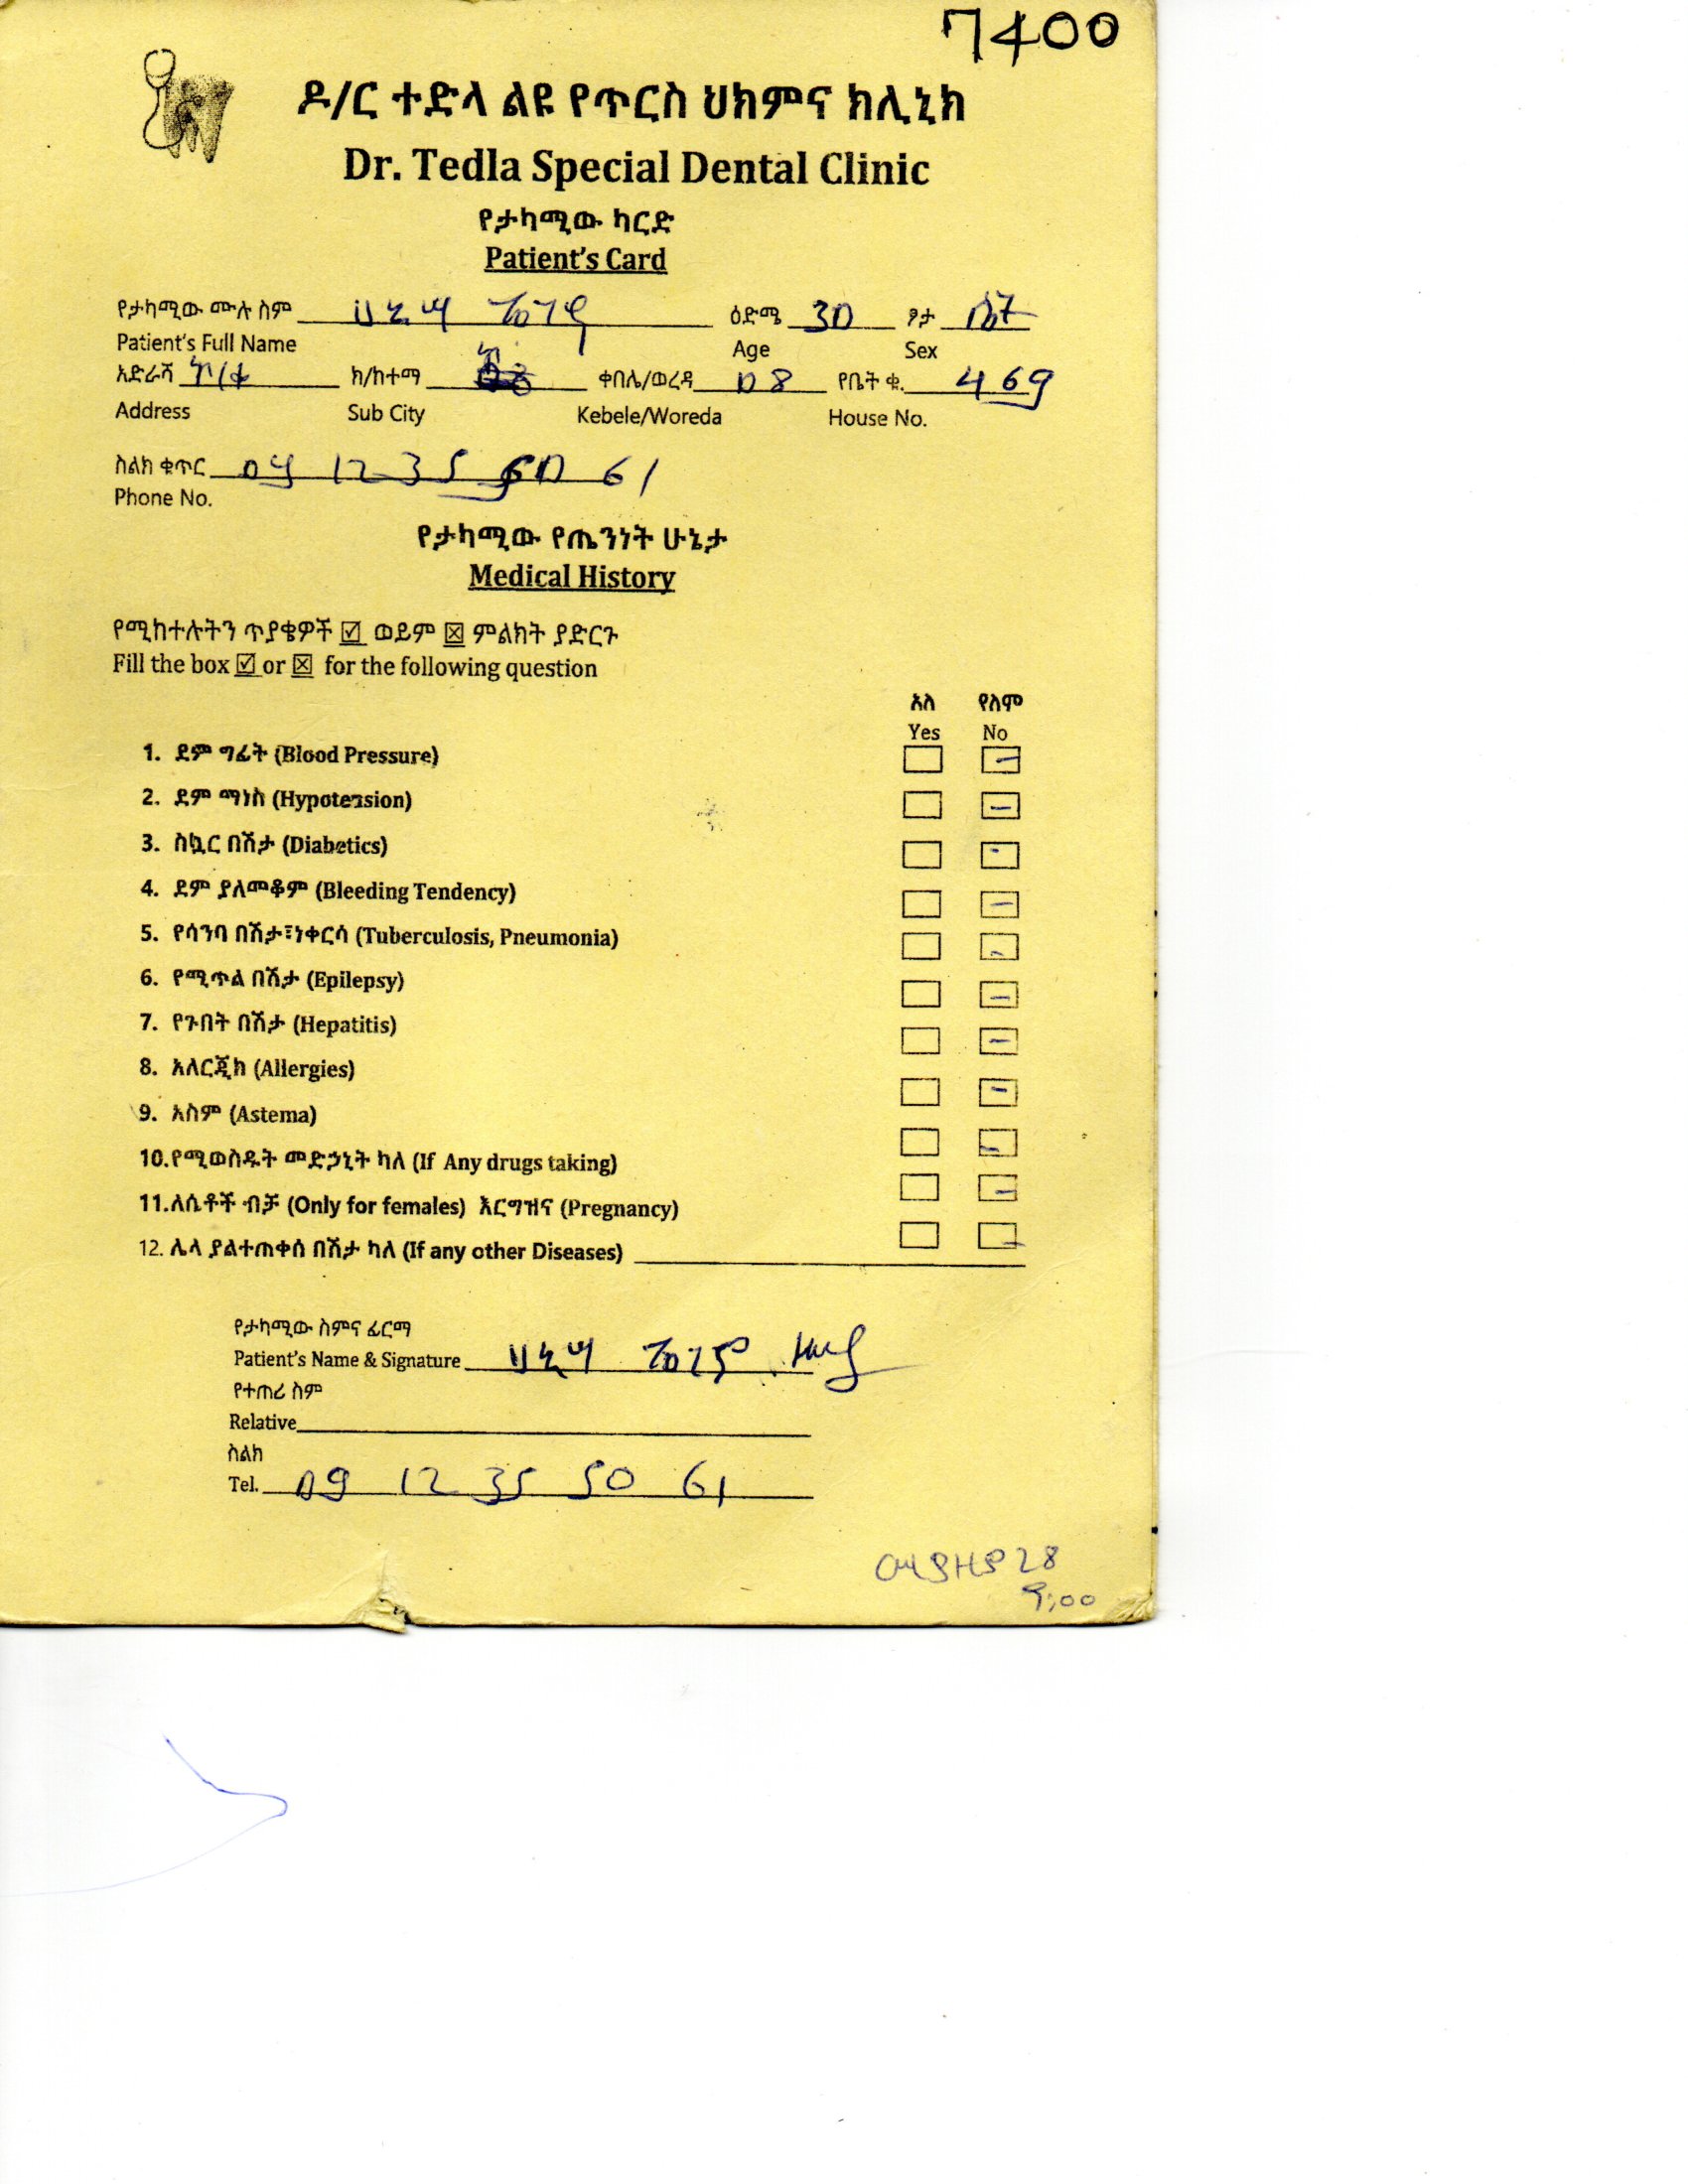 7400
ዶ/ር ተድላ ልዩ የጥርስ ህክምና ክሊኒክ
Dr. Tedla Special Dental Clinic
የታካሚው ካርድ
Patient's Card
የታካሚው ሙሉ ስም ዕድሜ 30 ፆታ ሴት
Patient's Full Name Age Sex
አድራሻ ክ/ከተማ ቀበሌ/ወረዳ 08 የቤት ቁ. 469
Address Sub City Kebele/Woreda House No.
ስልክ ቁጥር 09 12 35 50 61
Phone No.
የታካሚው የጤንነት ሁኔታ
Medical History
የሚከተሉትን ጥያቄዎች ☑ ወይም ☒ ምልክት ያድርጉ
Fill the box ☑ or ☒ for the following question
አለ የለም
Yes No
1. ደም ግፊት (Blood Pressure)
2. ደም ማነስ (Hypotension)
3. ስኳር በሽታ (Diabetics)
4. ደም ያለመቆም (Bleeding Tendency)
5. የሳንባ በሽታ፣ነቀርሳ (Tuberculosis, Pneumonia)
6. የሚጥል በሽታ (Epilepsy)
7. የጉበት በሽታ (Hepatitis)
8. አለርጂክ (Allergies)
9. አስም (Astema)
10.የሚወስዱት መድኃኒት ካለ (If Any drugs taking)
11.ለሴቶች ብቻ (Only for females) እርግዝና (Pregnancy)
12. ሌላ ያልተጠቀሰ በሽታ ካለ (If any other Diseases)
የታካሚው ስምና ፊርማ
Patient's Name & Signature
የተጠሪ ስም
Relative
ስልክ
Tel. 09 12 35 50 61
ሚያዚያ 28
9:00